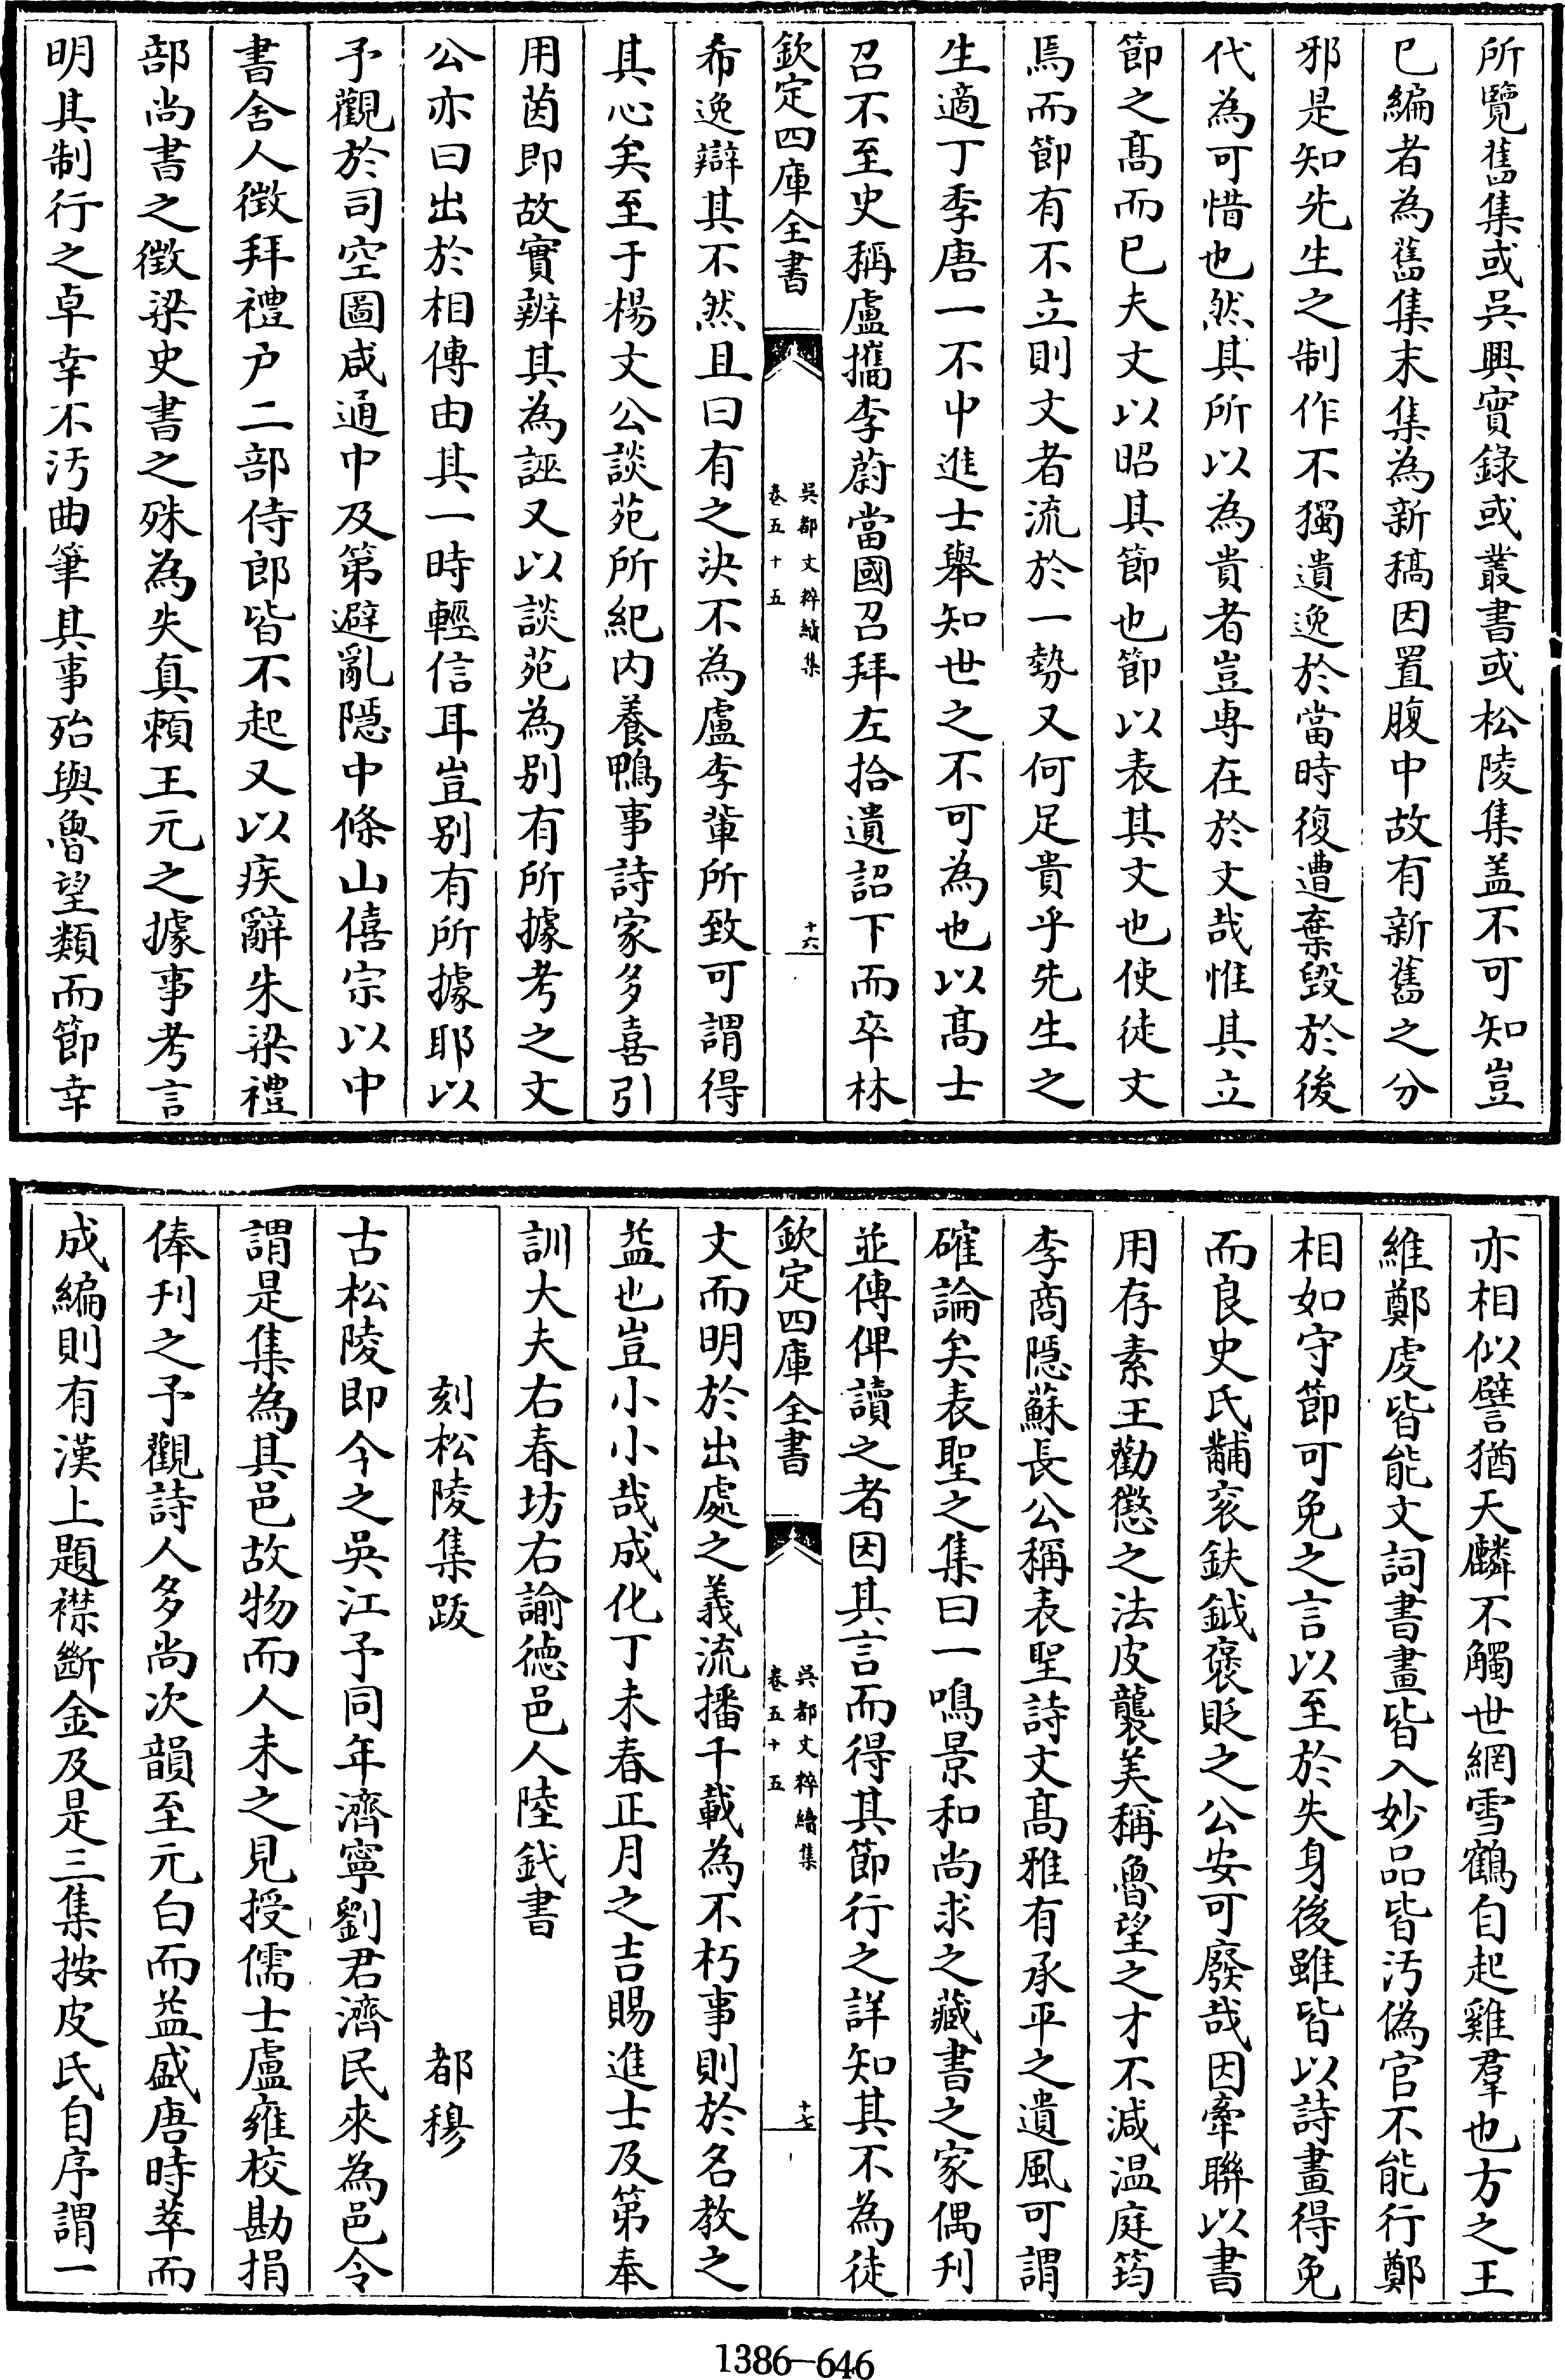 所覽舊集或吳興實錄或叢書或松陵集盖不可知豈
已編者為舊集末集為新稿因置腹中故有新舊之分
邪是知先生之制作不獨遺逸於當時復遭棄毀於後
代為可惜也然其所以為貴者豈專在於文哉惟其立
節之髙而已夫文以昭其節也節以表其文也使徒文
焉而節有不立則文者流於一勢又何足貴乎先生之
生適丁季唐一不中進士舉知世之不可為也以髙士
召不至史稱盧攜李蔚當國召拜左拾遺詔下而卒林
欽定四庫全書
吳都文粹續集
卷五十五
十六
希逸辯其不然且曰有之決不為盧李輩所致可謂得
其心矣至于楊文公談苑所紀内養鴨事詩家多喜引
用茵即故實辨其為誣又以談苑為别有所據考之文
公亦曰出於相傳由其一時輕信耳豈别有所據耶以
予觀於司空圖咸通中及第避亂隱中條山僖宗以中
書舍人徵拜禮户二部侍郎皆不起又以疾辭朱梁禮
部尚書之徵梁史書之殊為失真頼王元之據事考言
明其制行之卓幸不汚曲筆其事殆與魯望類而節幸
亦相似譬猶天麟不觸世網雪鶴自起雞羣也方之王
維鄭虔皆能文詞書畫皆入妙品皆汚偽官不能行鄭
相如守節可免之言以至於失身後雖皆以詩畫得免
而良史氏黼衮鈇鉞褒貶之公安可廢哉因牽聯以書
用存素王勸懲之法皮襲美稱魯望之才不減温庭筠
李商隱蘇長公稱表聖詩文髙雅有承平之遺風可謂
確論矣表聖之集曰一鳴景和尚求之藏書之家偶刋
並傳俾讀之者因其言而得其節行之詳知其不為徒
欽定四庫全書
吳都文粹續集
卷五十五
十七
文而明於出處之義流播千載為不朽事則於名教之
益也豈小小哉成化丁未春正月之吉賜進士及第奉
訓大夫右春坊右諭德邑人陸釴書
刻松陵集跋
都穆
古松陵即今之吳江予同年濟寧劉君濟民來為邑令
謂是集為其邑故物而人未之見授儒士盧雍校勘捐
俸刋之予觀詩人多尚次韻至元白而益盛唐時萃而
成編則有漢上題襟斷金及是三集按皮氏自序謂一
1386-646